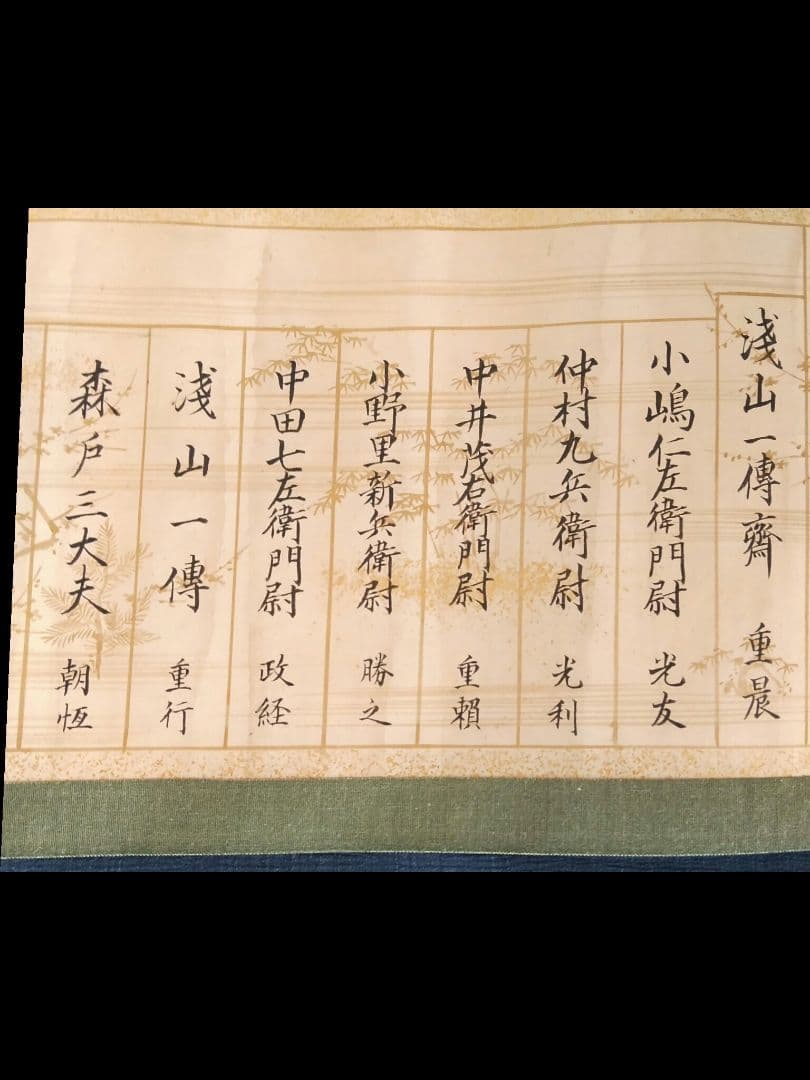 淺山一傳齋 重晨
小嶋仁左衛門尉 光友
仲村九兵衛尉 光利
中井茂右衛門尉 重頼
小野里新兵衛尉 勝之
中田七左衛門尉 政経
淺山一傳 重行
森戸三大夫 朝恆